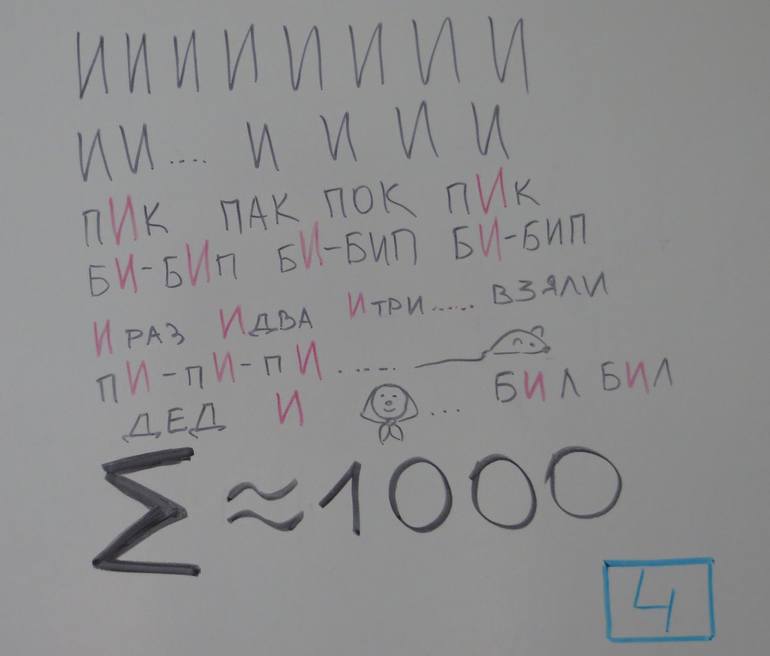 И И И И И И И И
И И .... И И И И
ПИК ПАК ПОК ПИК
БИ-БИП БИ-БИП БИ-БИП
И РАЗ И ДВА И ТРИ ..... ВЗЯЛИ
ПИ-ПИ-ПИ .....
ДЕД И ... БИЛ БИЛ
Σ ≈ 1000
4